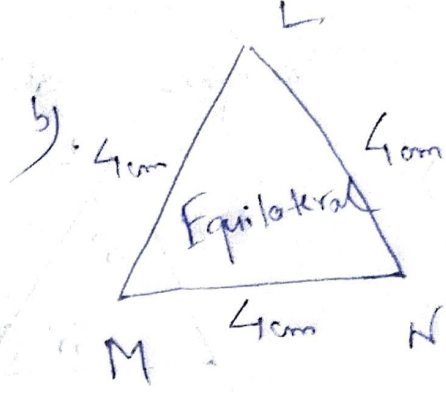 L
b).
4cm
4cm
Equilateral
4cm
M
N